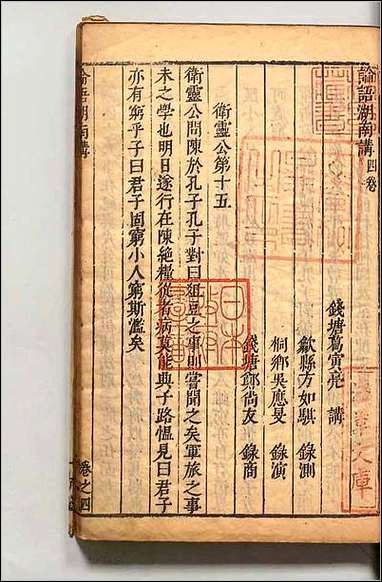 論語湖南講 四卷
錢塘葛寅亮 講
歙縣方如騏 錄測
桐鄉吳應旻 錄演
錢塘鄭尚友 錄商
衛靈公第十五
衛靈公問陳於孔子孔子對曰俎豆之事則嘗聞之矣軍旅之事
未之學也明日遂行在陳絶糧從者病莫能興子路慍見曰君子
亦有窮乎子曰君子固窮小人窮斯濫矣
論語湖南講
卷之四